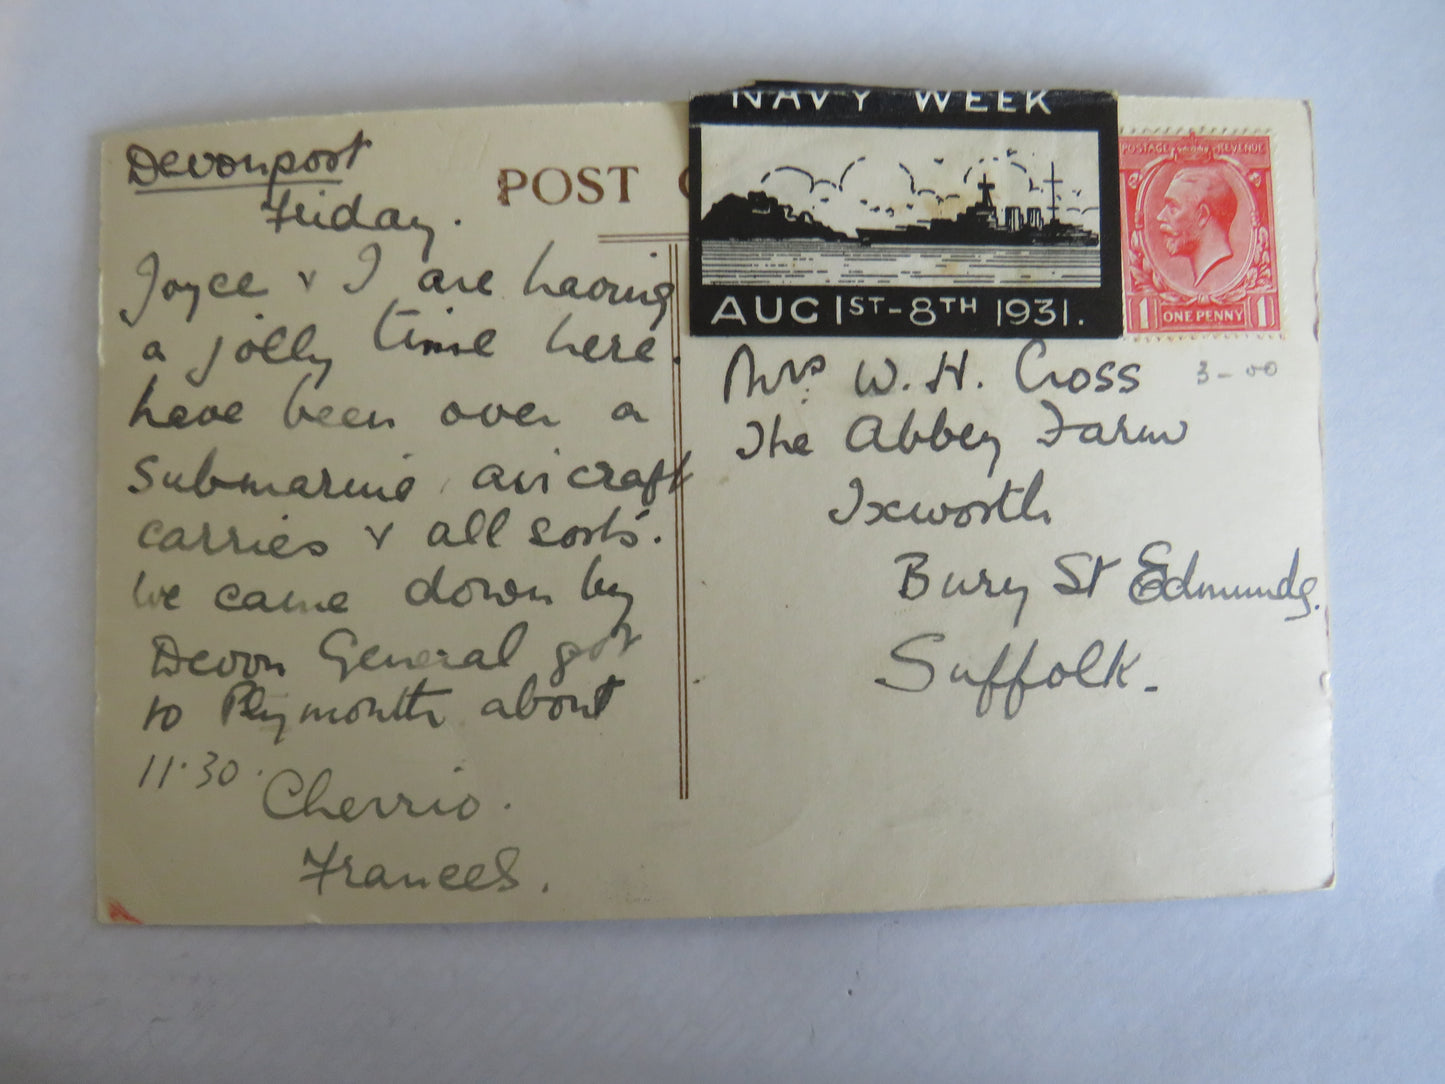 Devonport
Friday.
Joyce & I are having
a jolly time here.
have been over a
submarine, aircraft
carries & all sorts.
We came down by
Devon General got
to Plymouth about
11.30.
Cherrio.
Frances.
POST
NAVY WEEK
AUG 1ST-8TH 1931.
POSTAGE REVENUE
1 ONE PENNY 1
3-00
Mrs W. H. Cross
The Abbey Farm
Ixworth
Bury St Edmunds.
Suffolk.